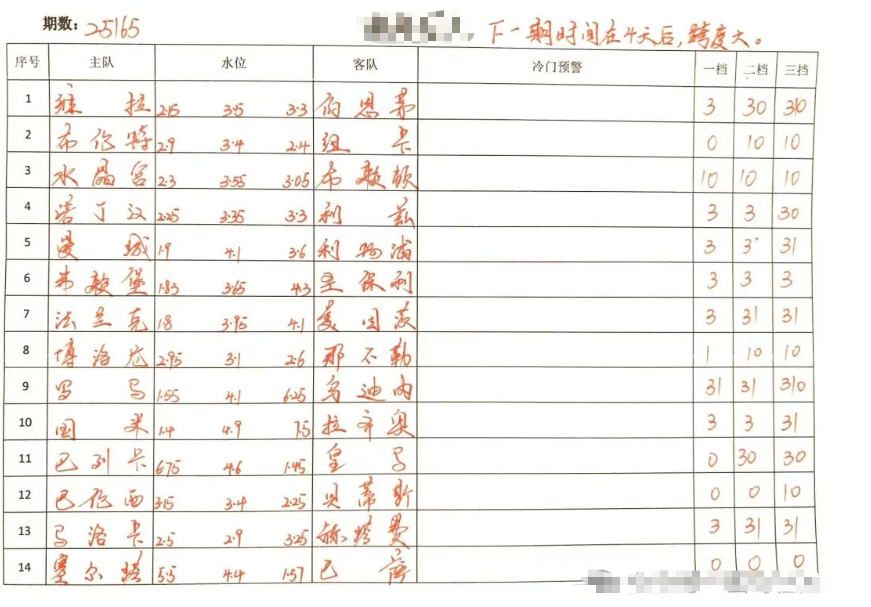 期数: 25165 下一期时间在4天后,跨度大。
序号 主队 水位 客队 冷门预警 一档 二档 三挡
1 维拉 2.15 3.5 3.3 伯恩茅 3 30 310
2 布伦特 2.9 3.4 2.4 纽卡 0 10 10
3 水晶宫 2.3 3.55 3.05 布敦顿 10 10 10
4 诺丁汉 2.25 3.35 3.3 利兹 3 3 30
5 曼城 1.9 4.1 3.6 利物浦 3 3 31
6 弗敦堡 1.83 3.65 4.3 圣保利 3 3 3
7 法兰克 1.8 3.95 4.1 美因茨 3 31 31
8 博洛尼 2.95 3.1 2.6 那不勒 1 10 10
9 罗马 1.55 4.1 6.25 乌迪内 31 31 310
10 国米 1.4 4.9 7.5 拉齐奥 3 3 31
11 巴列卡 6.75 4.6 1.45 皇马 0 30 30
12 巴伦西 3.15 3.4 2.25 贝蒂斯 0 0 10
13 马洛卡 2.5 2.9 3.25 赫塔费 3 31 31
14 塞尔塔 5.5 4.4 1.57 巴萨 0 0 0